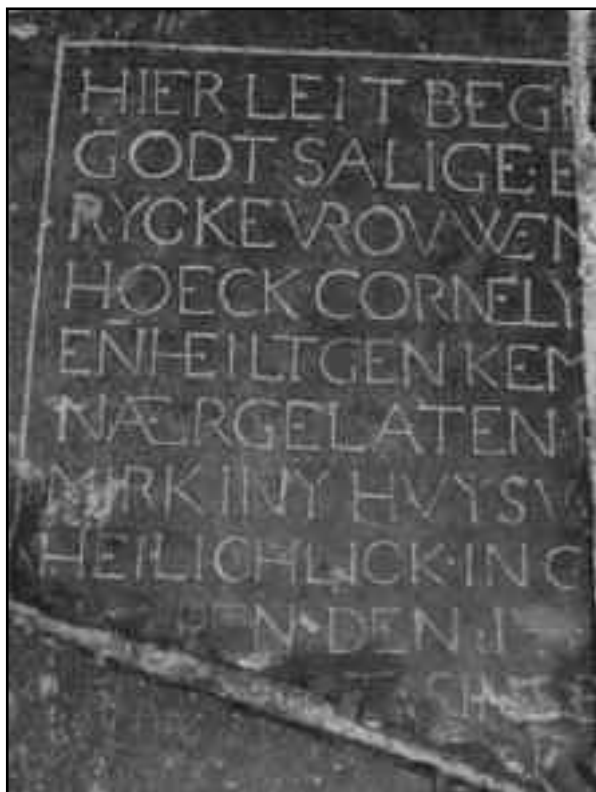 HIER LEIT BEG
GODT SALIGE E
RYCKE VROVWEN
HOECK CORNELY
EN HEILTGEN KEM
NÆRGELATEN
HVYSV
HEILICHLICK IN C
EN DEN J